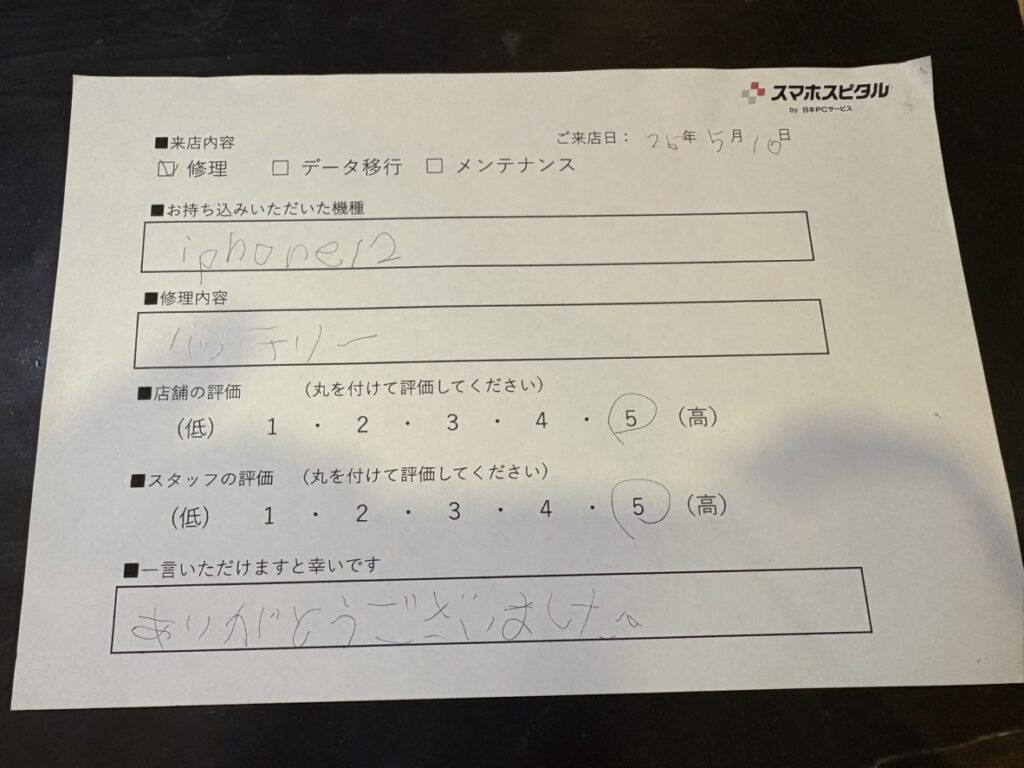 スマホスピタル
by 日本PCサービス
■来店内容
ご来店日： 26年 5月 10日
☑ 修理 □ データ移行 □ メンテナンス
■お持ち込みいただいた機種
iphone12
■修理内容
バッテリー
■店舗の評価 （丸を付けて評価してください）
（低） 1 ・ 2 ・ 3 ・ 4 ・ 5 （高）
■スタッフの評価 （丸を付けて評価してください）
（低） 1 ・ 2 ・ 3 ・ 4 ・ 5 （高）
■一言いただけますと幸いです
ありがとうございました。